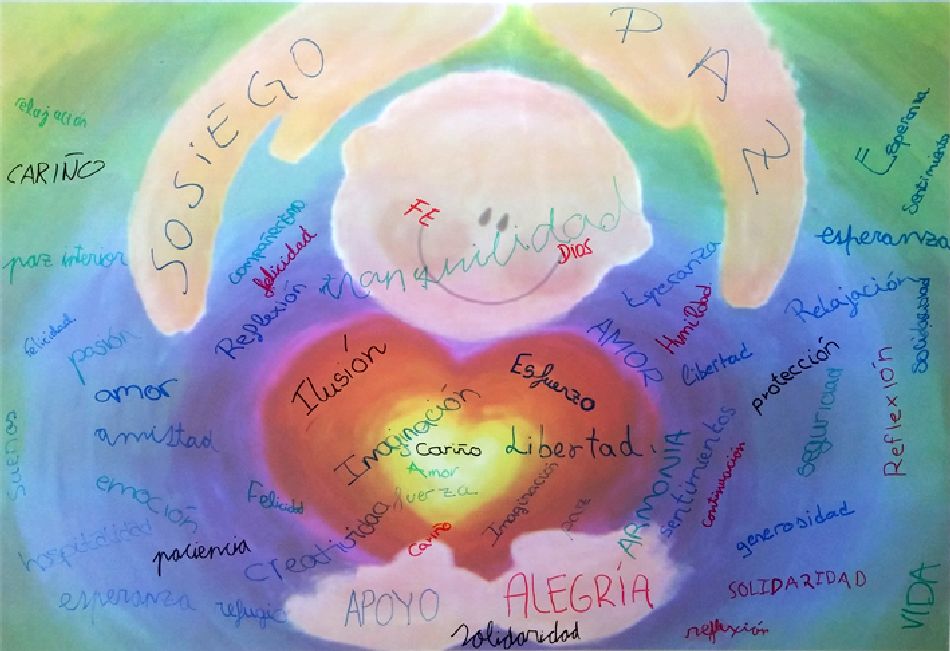 SOSIEGO
PAZ
relajación
CARIÑO
Esperanza
Sentimiento
compañerismo
felicidad
FE
tranquilidad
Dios
esperanza
paz interior
Esperanza
Humildad
Relajación
Solidaridad
felicidad
pasión
Reflexión
Ilusión
Esfuerzo
AMOR
libertad
protección
amor
Imaginación
Cariño
Libertad
seguridad
Reflexión
amistad
Amor
ARMONIA
sentimientos
continuación
sueños
emoción
Felicidad
fuerza
Imaginación
paz
generosidad
hospitalidad
paciencia
creatividad
cariño
esperanza
refugio
APOYO
ALEGRÍA
SOLIDARIDAD
VIDA
Solidaridad
reflexión